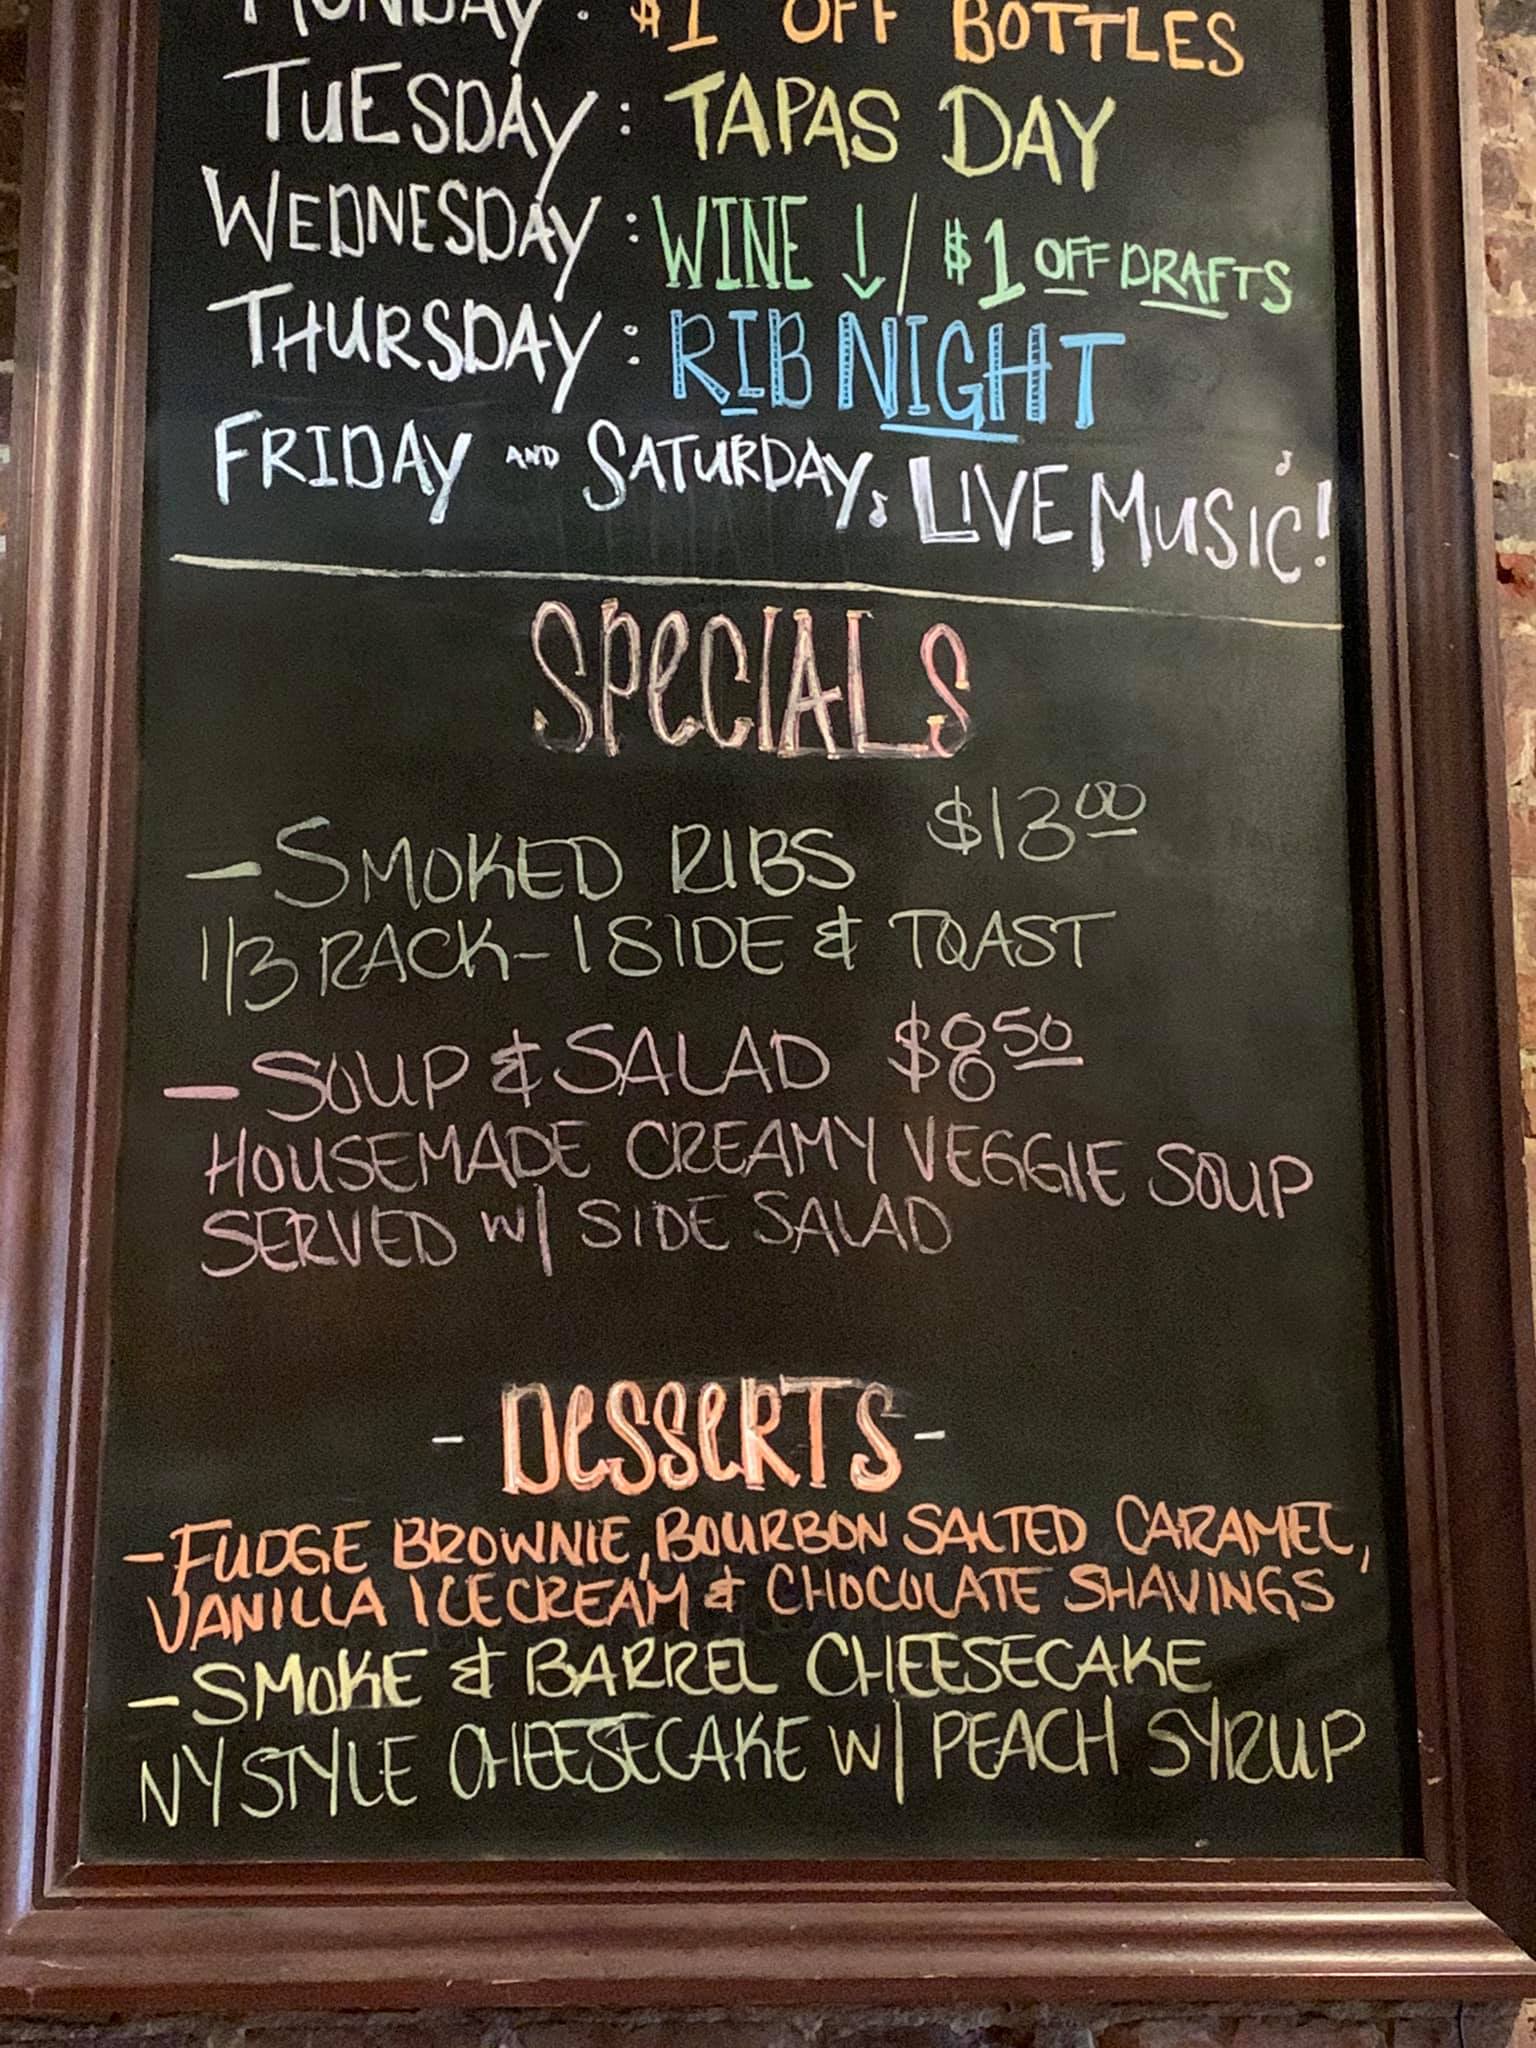 MONDAY: $1 OFF BOTTLES
TUESDAY: TAPAS DAY
WEDNESDAY: WINE ↓/ $1 OFF DRAFTS
THURSDAY: RIB NIGHT
FRIDAY AND SATURDAY, LIVE MUSIC!
SPeCIALS
- SMOKED RIBS $13.00
1/3 RACK - 1 SIDE & TOAST
- SOUP & SALAD $8.50
HOUSEMADE CREAMY VEGGIE SOUP
SERVED W/ SIDE SALAD
- DeSSeRTS -
- FUDGE BROWNIE, BOURBON SALTED CARAMEL,
VANILLA ICECREAM & CHOCOLATE SHAVINGS
- SMOKE & BARREL CHEESECAKE
NY STYLE CHEESECAKE W/ PEACH SYRUP